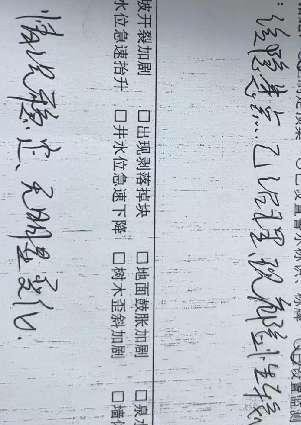 ：该隐患点已治理，现危险性较
坡开裂加剧 □ 出现剥落掉块 □ 地面鼓胀加剧 □ 泉水
水位急速抬升 □ 井水位急速下降 □ 树木歪斜加剧 □ 墙体
情况稳定、无明显变化.